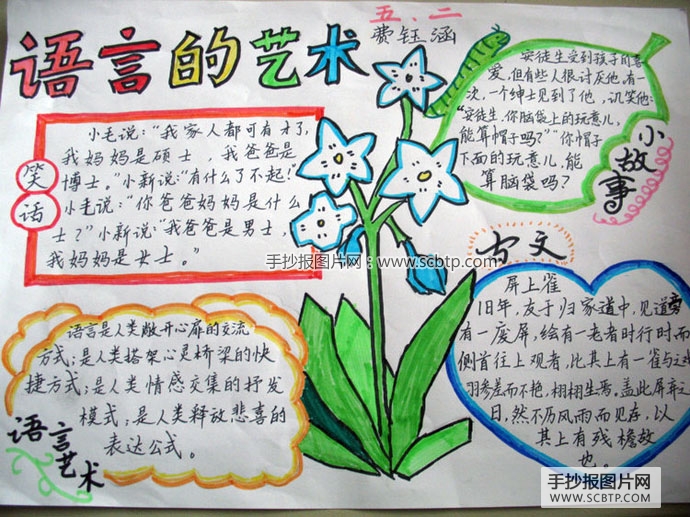 语言的艺术
五、二
费钰涵
笑话
小毛说:“我家人都可有才了,
我妈妈是硕士,我爸爸是
博士。”小新说:“有什么了不起!”
小毛说:“你爸爸妈妈是什么
士?”小新说:“我爸爸是男士,
我妈妈是女士。”
安徒生受到孩子的喜
爱,但有些人很讨厌他,有一
次,一个绅士见到了他,讥笑他:
“安徒生,你脑袋上的玩意儿,
能算帽子吗?”“你帽子
下面的玩意儿,能
算脑袋吗?
小故事
手抄报图片网:www.scbtp.com
古文
屏上雀
旧年,友于归家道中,见道旁
有一废屏,绘有一老者时行时而
侧首往上观者,比其上有一雀与
羽参差而不艳,栩栩生焉。盖此屏弃之
日,然不历风雨而见存,以
其上有残檐故
也。
语言是人类敞开心扉的交流
方式;是人类搭架心灵桥梁的快
捷方式;是人类情感交集的抒发
模式;是人类释放悲喜的
表达公式。
语言艺术
手抄报图片网
WWW.SCBTP.COM